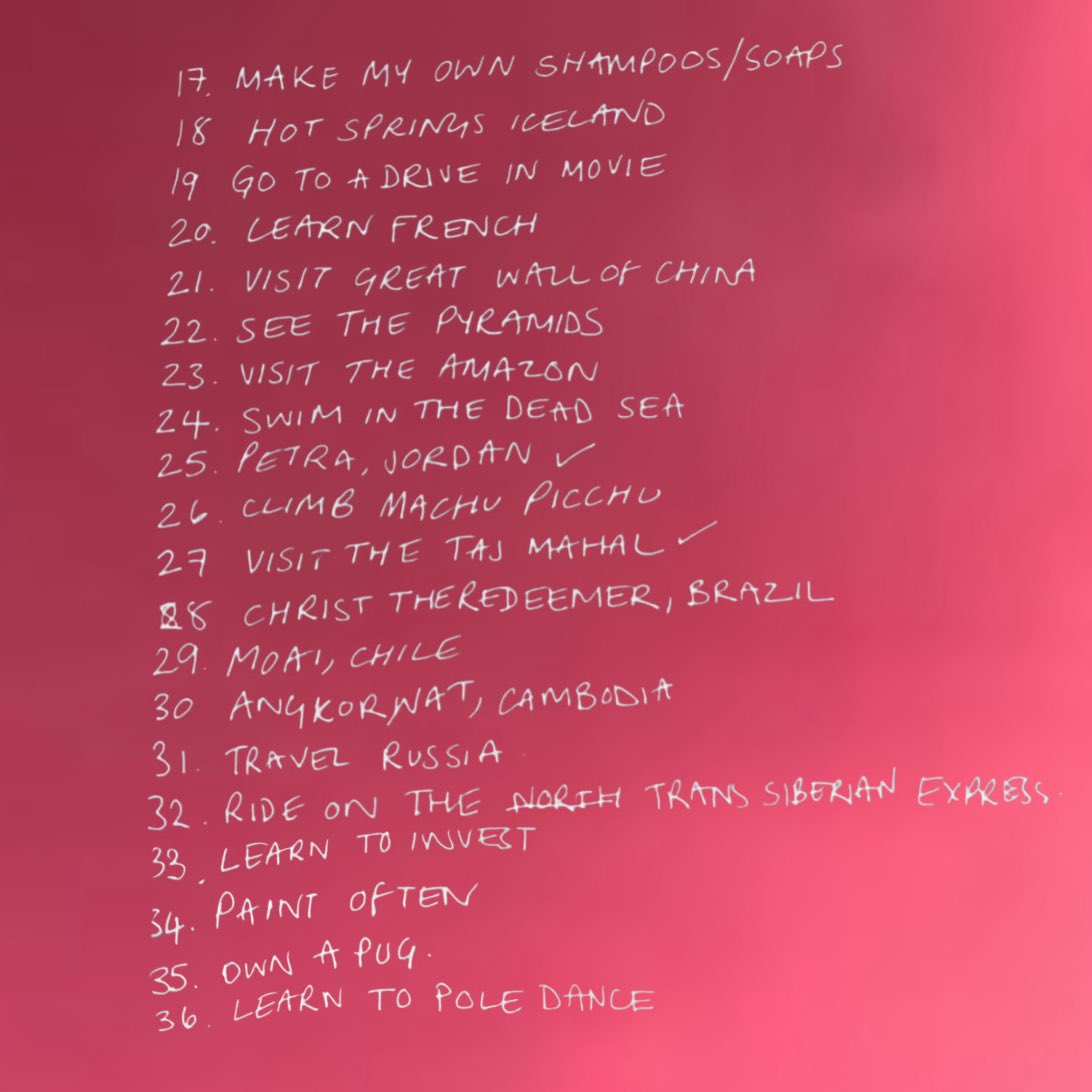 17. MAKE MY OWN SHAMPOOS/SOAPS
18 HOT SPRINGS ICELAND
19 GO TO A DRIVE IN MOVIE
20. LEARN FRENCH
21. VISIT GREAT WALL OF CHINA
22. SEE THE PYRAMIDS
23. VISIT THE AMAZON
24. SWIM IN THE DEAD SEA
25. PETRA, JORDAN ✓
26. CLIMB MACHU PICCHU
27 VISIT THE TAJ MAHAL ✓
28 CHRIST THE REDEEMER, BRAZIL
29. MOAI, CHILE
30 ANGKOR WAT, CAMBODIA
31. TRAVEL RUSSIA
32. RIDE ON THE NORTH TRANS SIBERIAN EXPRESS.
33. LEARN TO INVEST
34. PAINT OFTEN
35. OWN A PUG.
36. LEARN TO POLE DANCE